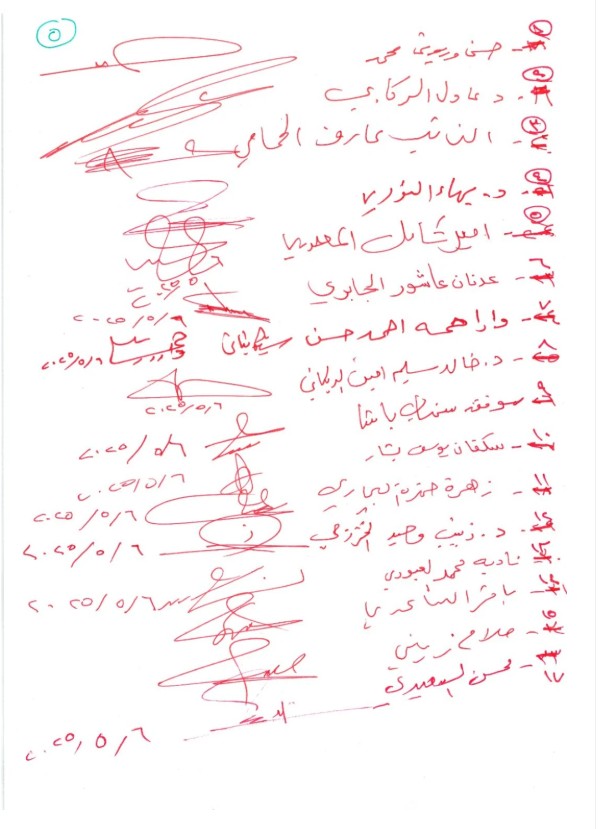 ٥
حسن وريوش محمد
٢- د عادل الركابي
٣- النائب عارف الحمامي
٤- د. بهاء النوري
٥- امير المعموري
٦- عدنان عاشور الجابري
٢٠٢٥/٥/٦
٧- احمد حسن
٢٠٢٥/٥/٦
٨- د. خالد سليم امين
٢٠٢٥/٥/٦
٩- موفق باشا
٢٠٢٥/٥/٦
١٠- سكفان يوسف
٢٠٢٥/٥/٦
١١- زهرة حمزة البجاري
٢٠٢٥/٥/٦
د. زينب وحيد الخزرجي
٢٠٢٥/٥/٦
نادية محمد العبودي
٢٠٢٥/٥/٦
باقر الساعدي
صلاح زيني
١٧ محسن السعيدي
٢٠٢٥/٥/٦